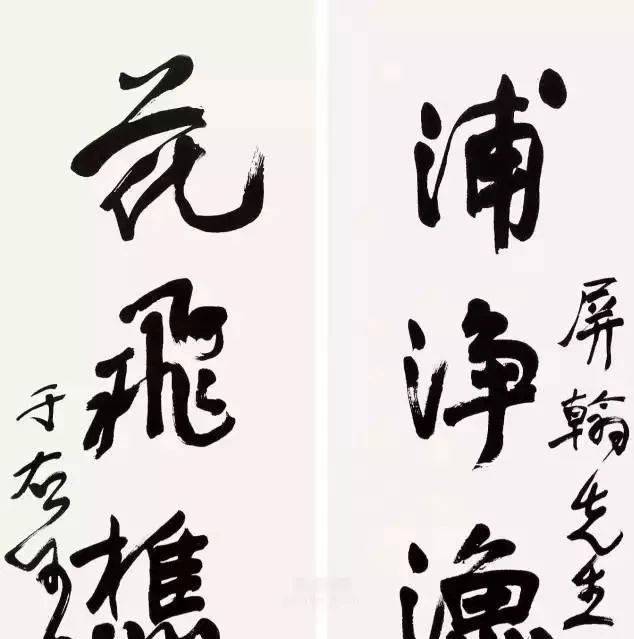 屏翰先生
浦净漁
花飛樵
于右